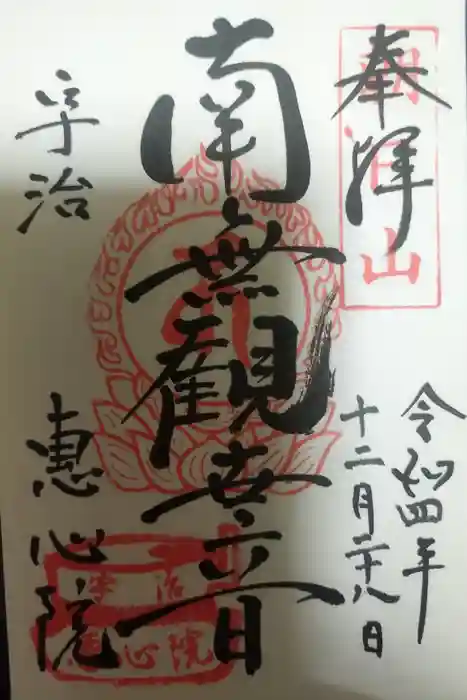 奉拝
朝日山
令和四年
十二月二十八日
南無観世音
宇治
恵心院
宇治
恵心院